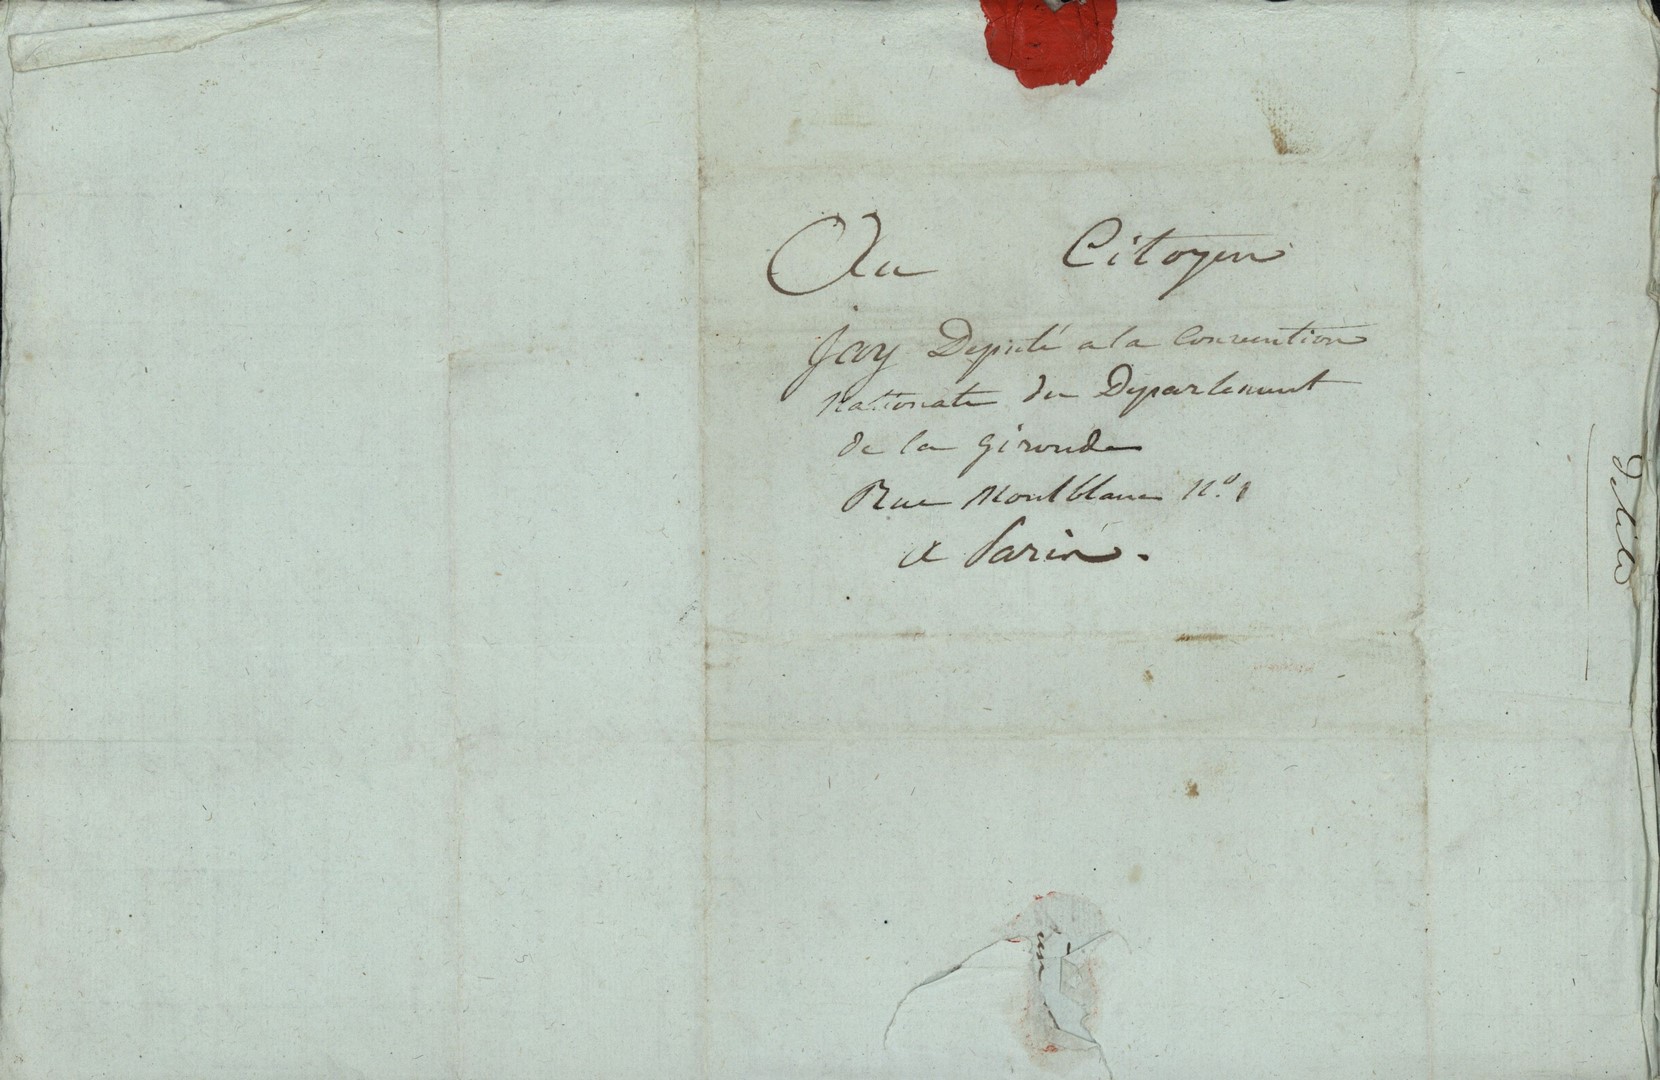 Au Citoyen
Jay Deputé a la Convention
Nationale du Departement
de la Gironde
Rue Montblanc N.º 1
a Paris.